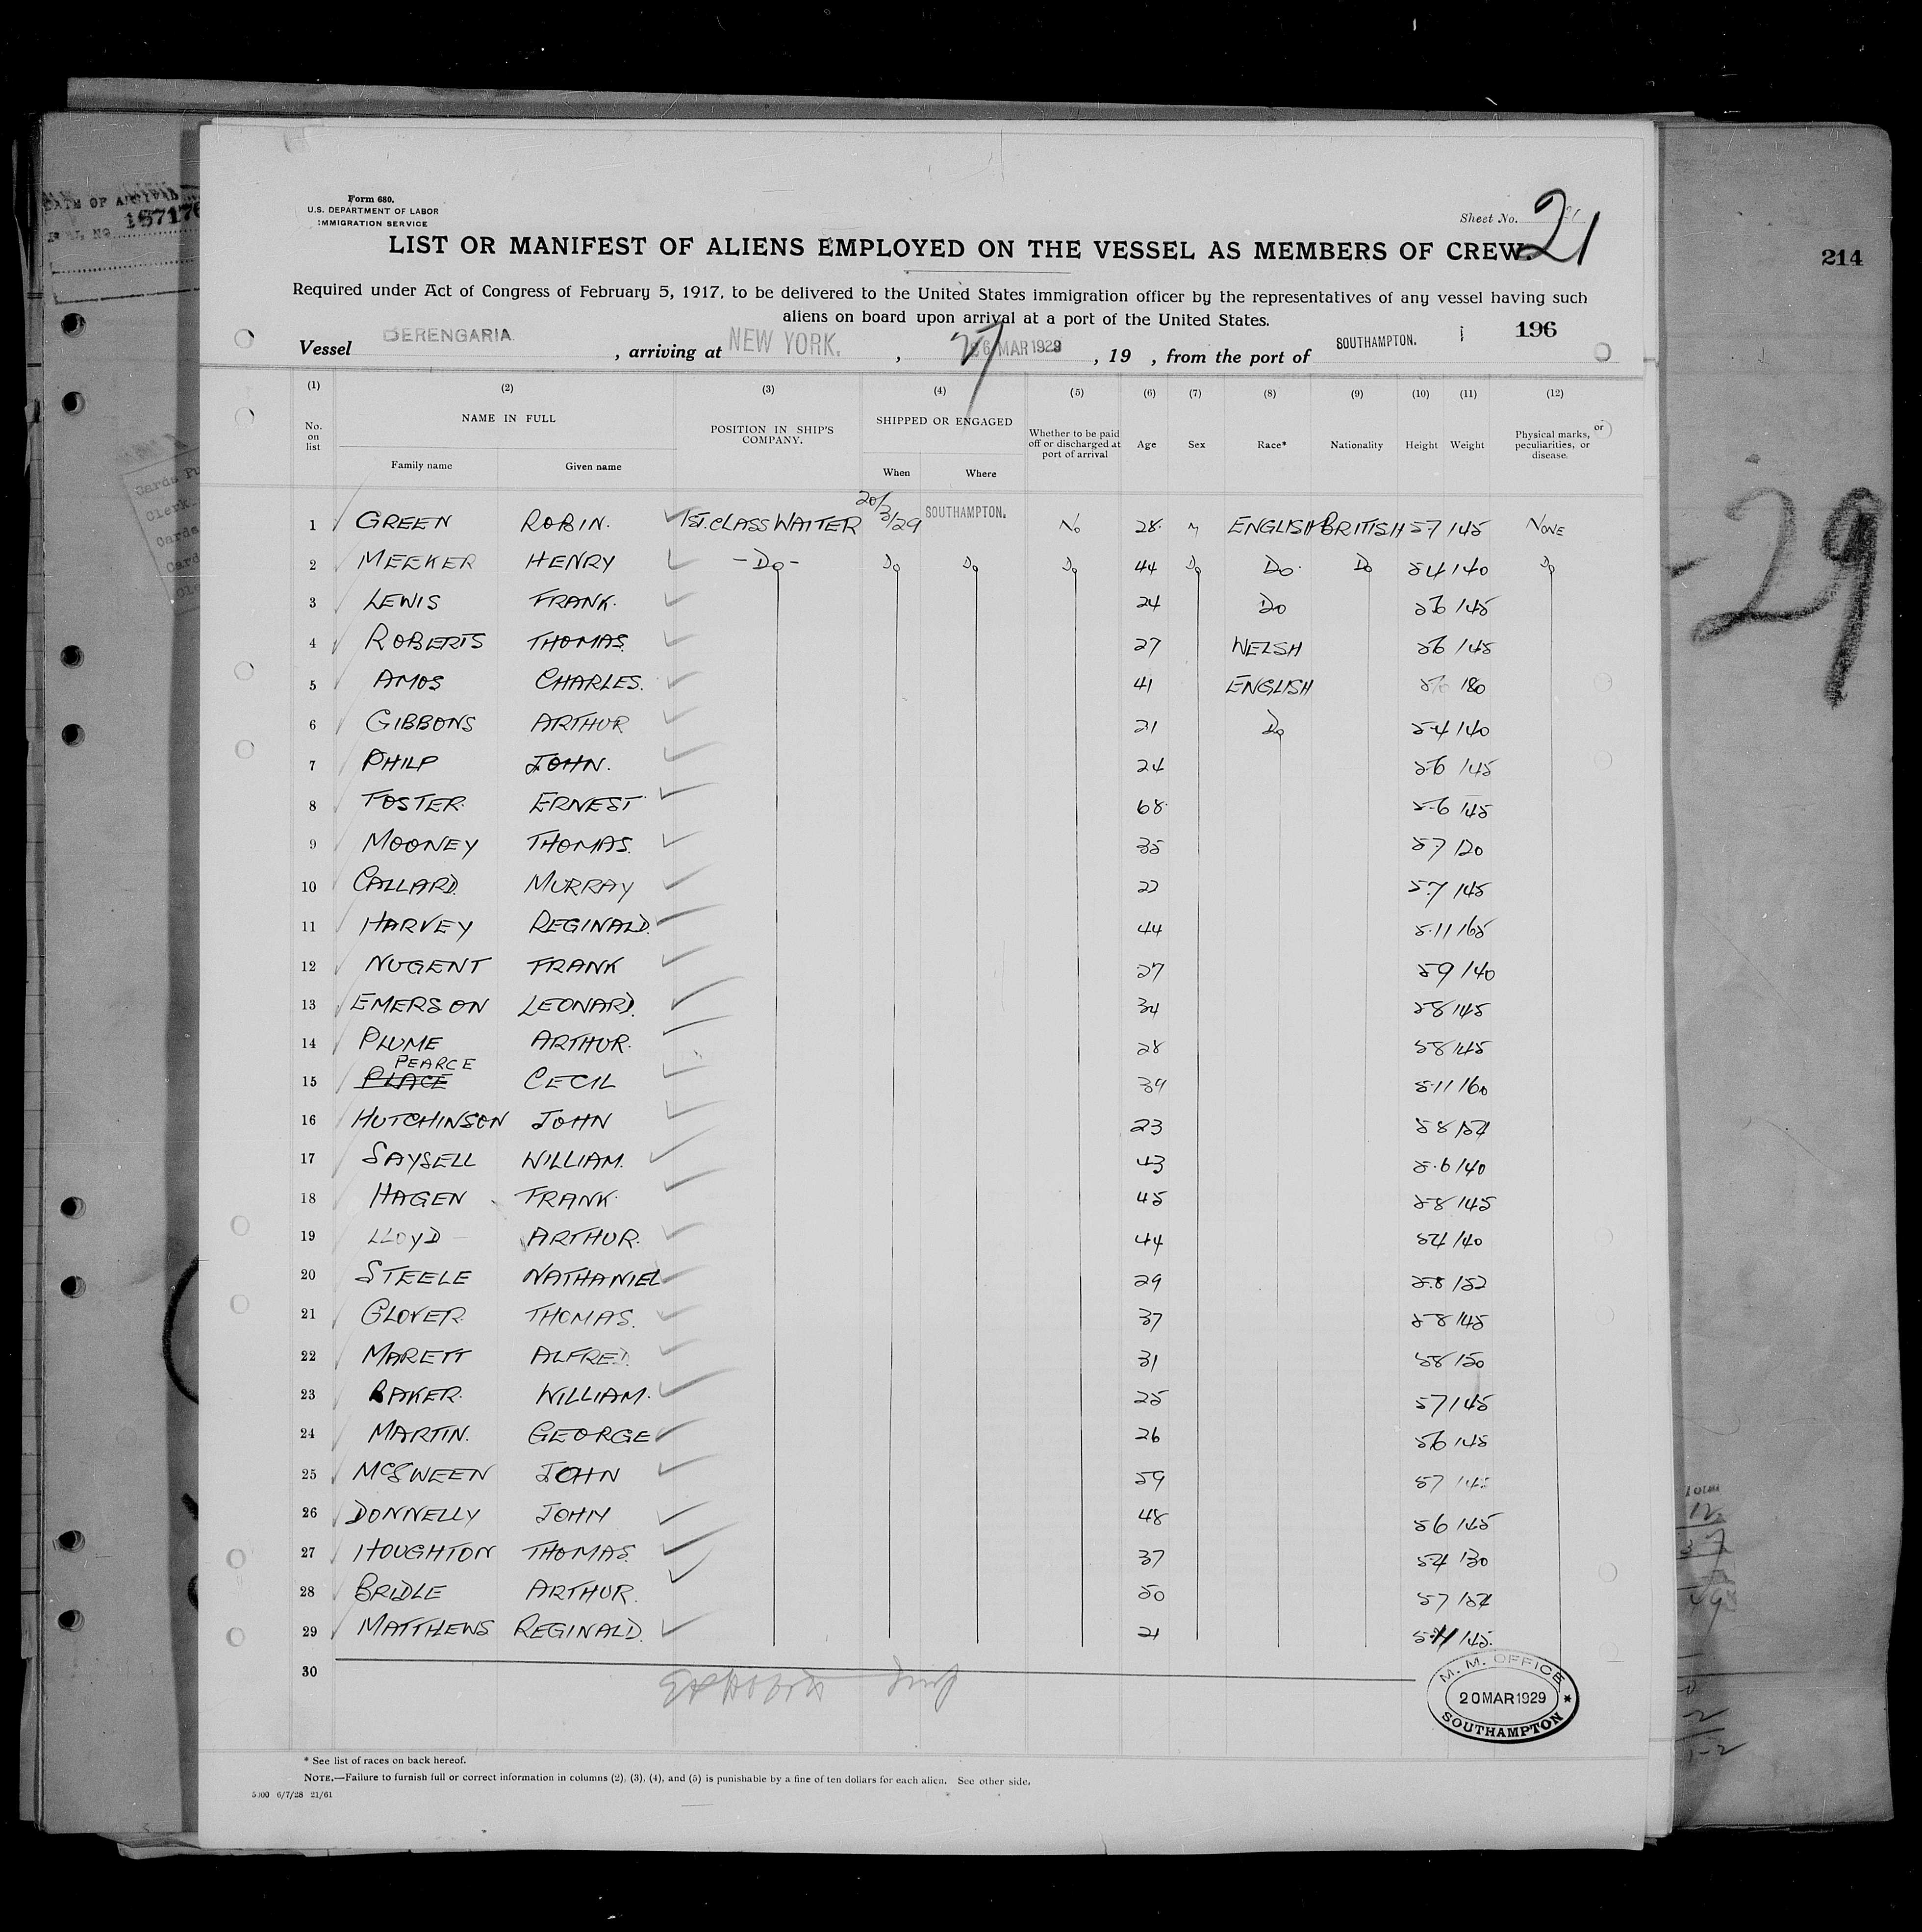 DATE OF ARRIVAL
157176
Form 680.
U.S. DEPARTMENT OF LABOR
IMMIGRATION SERVICE
Sheet No. 21
LIST OR MANIFEST OF ALIENS EMPLOYED ON THE VESSEL AS MEMBERS OF CREW
214
Required under Act of Congress of February 5, 1917, to be delivered to the United States immigration officer by the representatives of any vessel having such
aliens on board upon arrival at a port of the United States.
196
Vessel BERENGARIA, arriving at NEW YORK. , 27 MAR 1929 , 19 , from the port of SOUTHAMPTON.
(1) (2) (3) (4) (5) (6) (7) (8) (9) (10) (11) (12)
No. on list NAME IN FULL POSITION IN SHIP'S COMPANY. SHIPPED OR ENGAGED Whether to be paid off or discharged at port of arrival Age Sex Race* Nationality Height Weight Physical marks, peculiarities, or disease.
Family name Given name When Where
1 GREEN ROBIN. 1ST. CLASS WAITER 20/3/29 SOUTHAMPTON. No 28 M ENGLISH BRITISH 57 145 NONE
2 MEEKER HENRY -Do- Do Do Do 44 Do Do Do 54 140 Do
3 LEWIS FRANK. 24 Do 56 145
4 ROBERTS THOMAS. 27 WELSH 56 145
5 AMOS CHARLES. 41 ENGLISH 180
6 GIBBONS ARTHUR 21 Do 5-4 140
7 PHILP JOHN. 24 5-6 145
8 FOSTER. ERNEST 68 5-6 145
9 MOONEY THOMAS. 35 5-7 120
10 CALLARD. MURRAY 22 5.7 145
11 HARVEY REGINALD. 44 5.11 165
12 NUGENT FRANK 27 59 140
13 EMERSON LEONARD. 34 58 145
14 PLUME ARTHUR. 28 58 145
PEARCE
15 PLACE CECIL 39 5.11 160
16 HUTCHINSON JOHN 23 58 154
17 SAYSELL WILLIAM. 43 5.6 140
18 HAGEN FRANK. 45 58 145
19 LLOYD ARTHUR. 44 54 140
20 STEELE NATHANIEL 29 5.8 152
21 GLOVER. THOMAS. 37 58 145
22 MARETT ALFRED. 31 58 150
23 BAKER. WILLIAM. 25 57 145
24 MARTIN. GEORGE 26 56 145
25 McSWEEN JOHN 59 57 145
26 DONNELLY JOHN 48 56 145
27 HOUGHTON THOMAS. 37 54 130
28 BRIDLE ARTHUR. 50 57 154
29 MATTHEWS REGINALD. 21 145.
30
M. M. OFFICE
20 MAR 1929 *
SOUTHAMPTON
* See list of races on back hereof.
NOTE.—Failure to furnish full or correct information in columns (2), (3), (4), and (5) is punishable by a fine of ten dollars for each alien. See other side.
6/7/28 21/61
-29